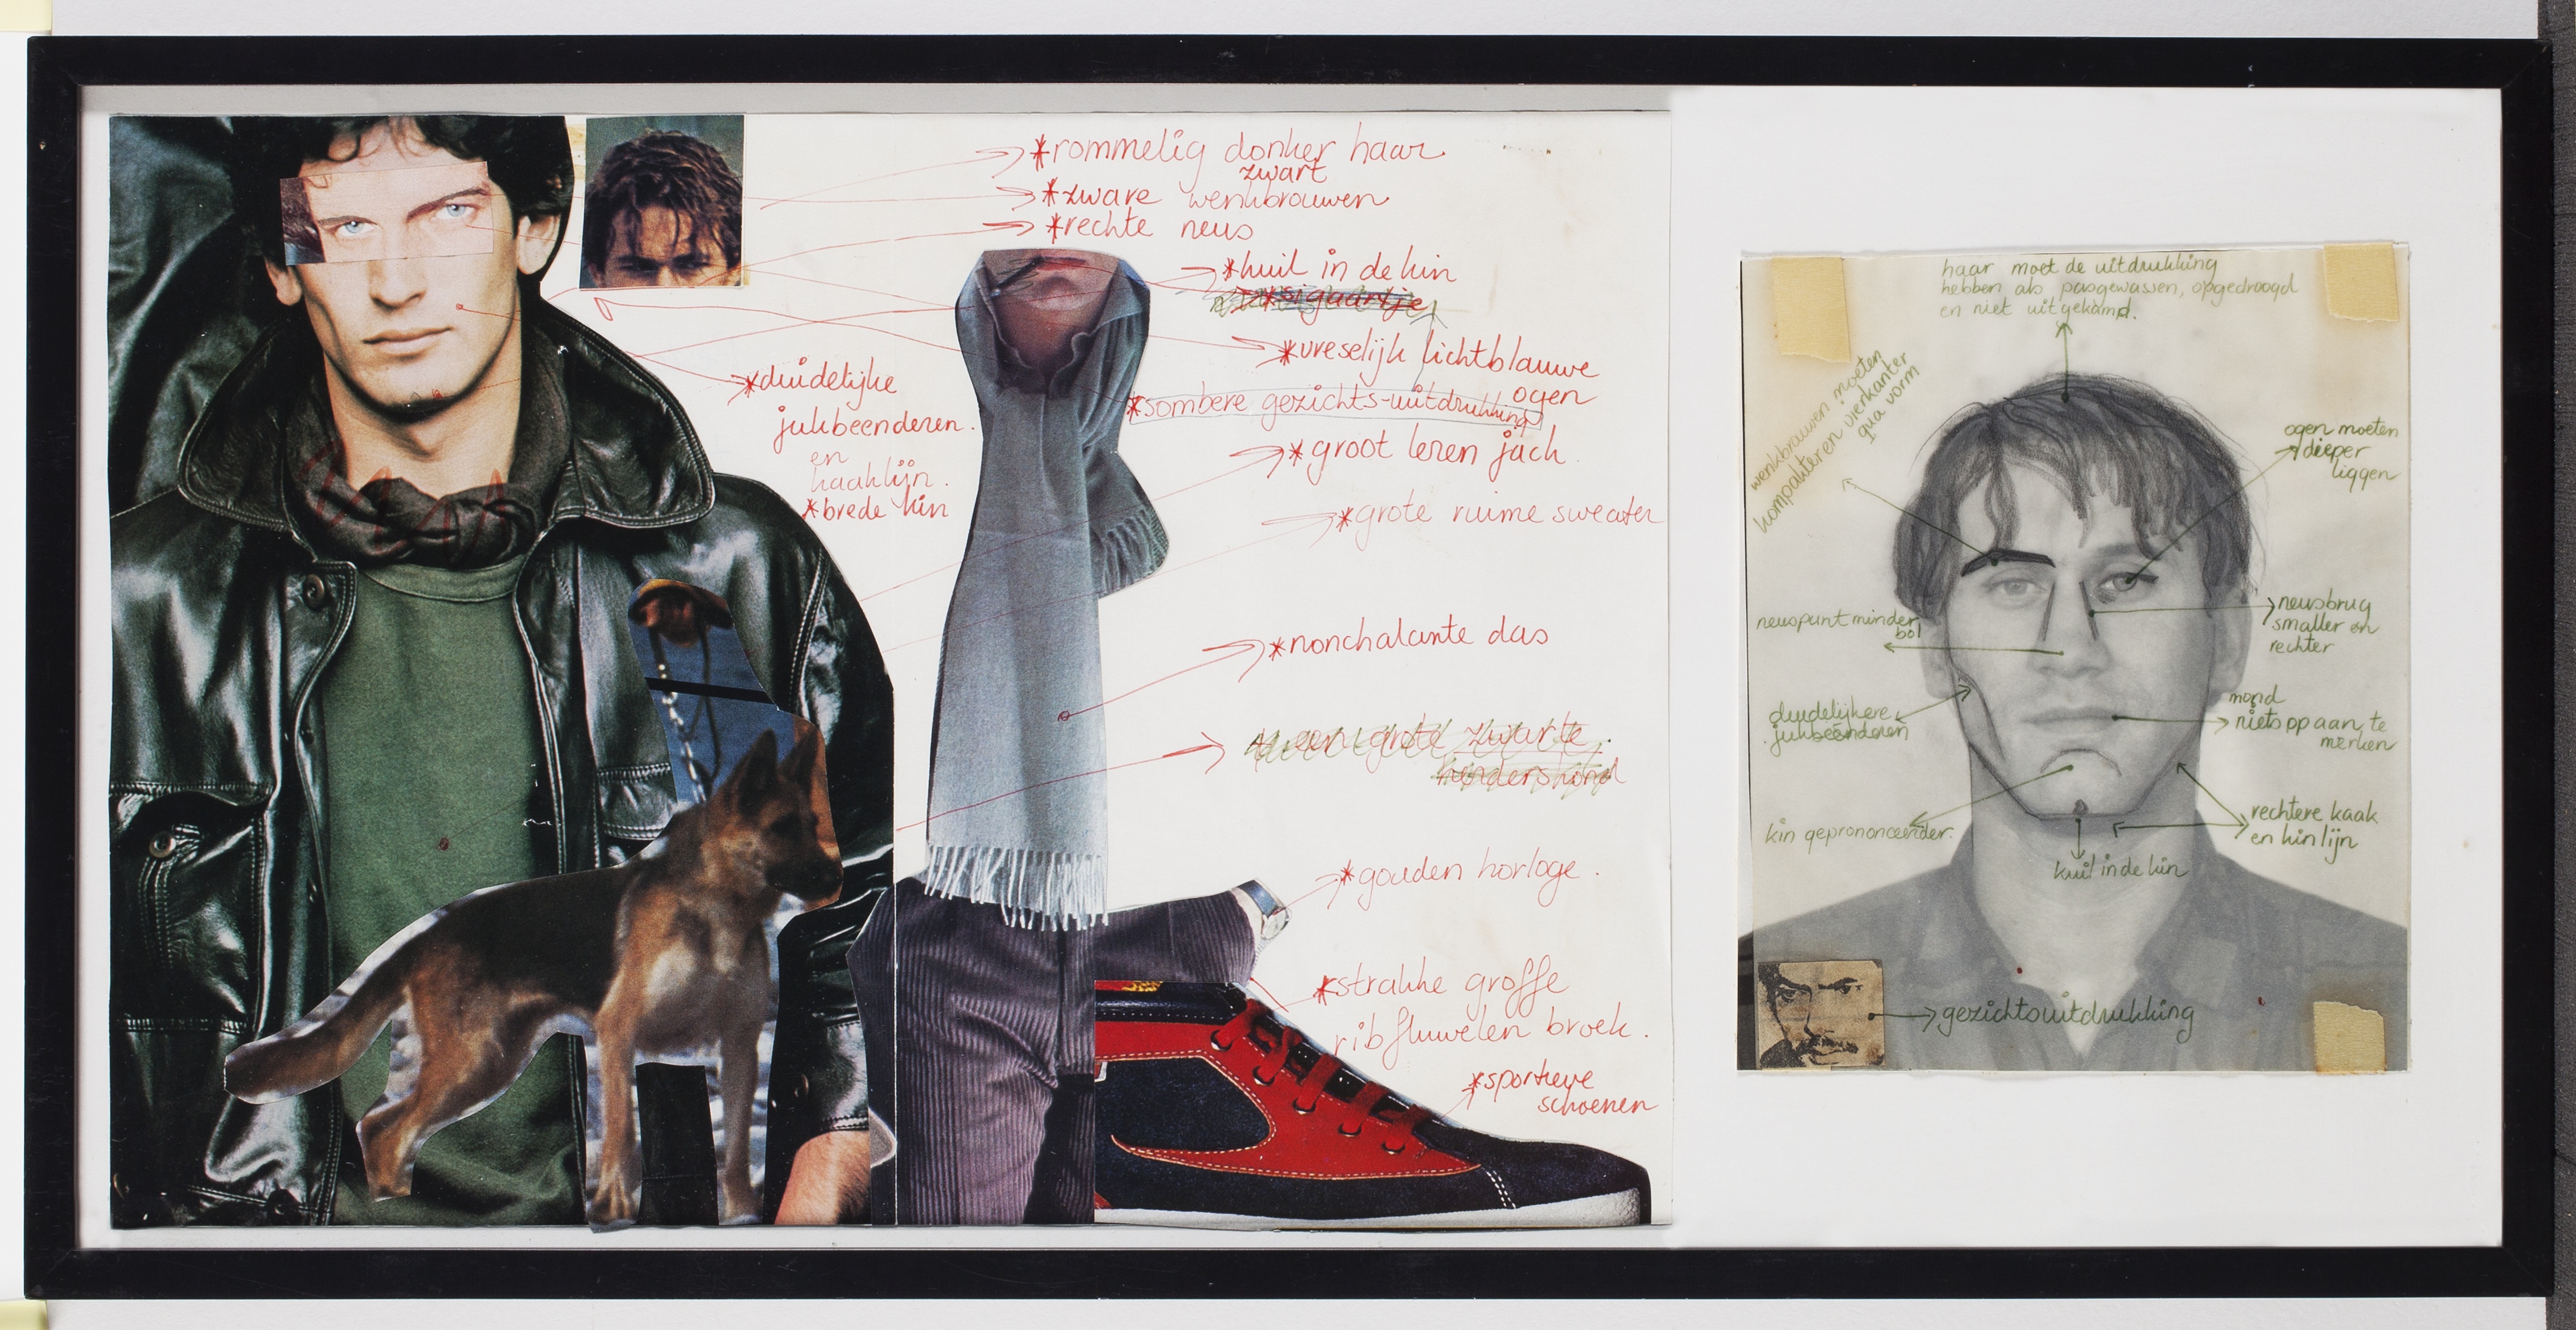 *rommelig donker haar
zwart
*zware wenkbrouwen
*rechte neus
*kuil in de kin
*sigaartje
*vreselijk lichtblauwe
ogen
*sombere gezichts-uitdrukking
*duidelijke
jukbeenderen.
en
kaaklijn.
*brede kin
*groot leren jack.
*grote ruime sweater
*nonchalante das
*een grote zwarte
hond
*gouden horloge.
*strakke groffe
ribfluwelen broek.
*sportieve
schoenen
haar moet de uitdrukking
hebben als pasgewassen, opgedroogd
en niet uitgekamd.
wenkbrauwen moeten
kompakter en vierkanter
qua vorm
ogen moeten
dieper
liggen
neuspunt minder
bol
neusbrug
smaller en
rechter
duidelijkere
jukbeenderen
mond
niets op aan te
merken
kin geprononceerder.
rechtere kaak
en kin lijn
kuil in de kin
gezichtsuitdrukking